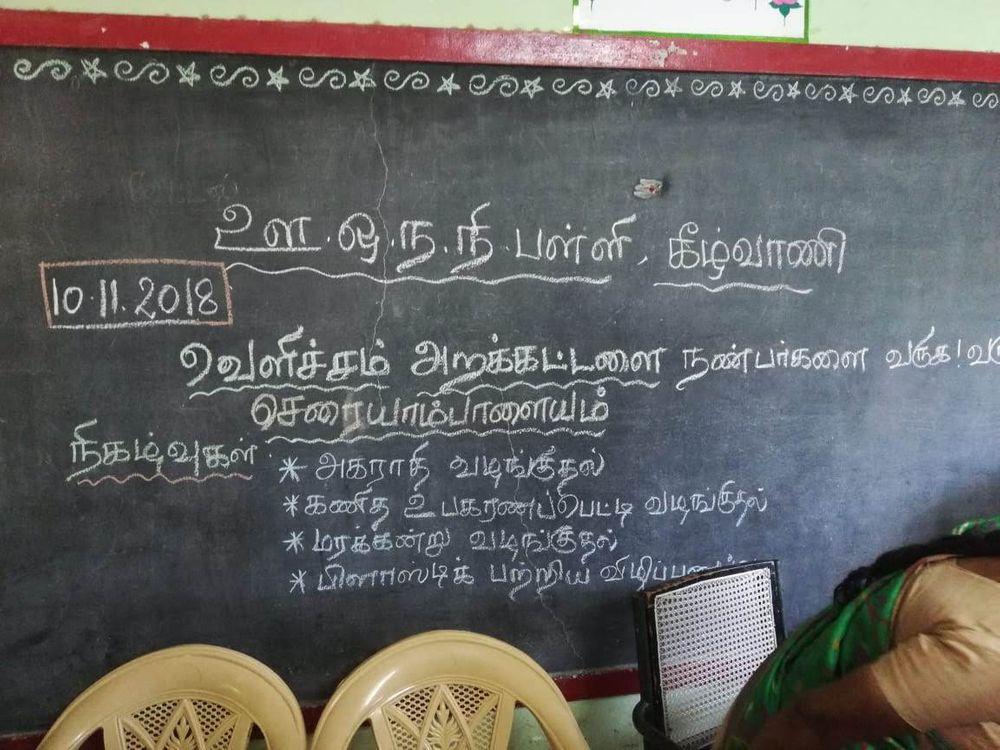 ஊ.ஒ.ந.நி.பள்ளி, கீழ்வாணி
10.11.2018
வெளிச்சம் அறக்கட்டளை நண்பர்களை வருக!
செரையாம்பாளையம்
நிகழ்வுகள்
* அகராதி வழங்குதல்
* கணித உபகரணப்பெட்டி வழங்குதல்
* மரக்கன்று வழங்குதல்
* பிளாஸ்டிக் பற்றிய